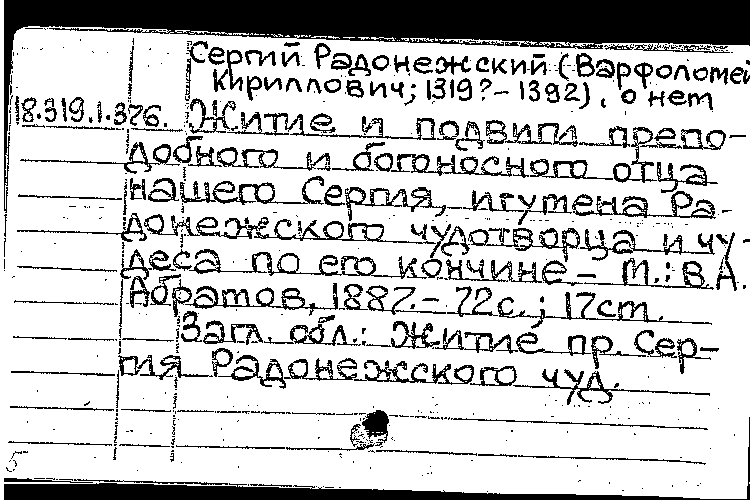 Сергий Радонежский (Варфоломей
Кириллович; 1319?-1392), о нем
18.319.1.376. Житие и подвиги препо-
добного и богоносного отца
нашего Сергия, игумена Ра-
донежского чудотворца и чу-
деса по его кончине.- М.: В.А.
Абратов, 1887.- 72с.; 17см.
Загл. обл.: Житие пр. Сер-
гия Радонежсского чуд.
5